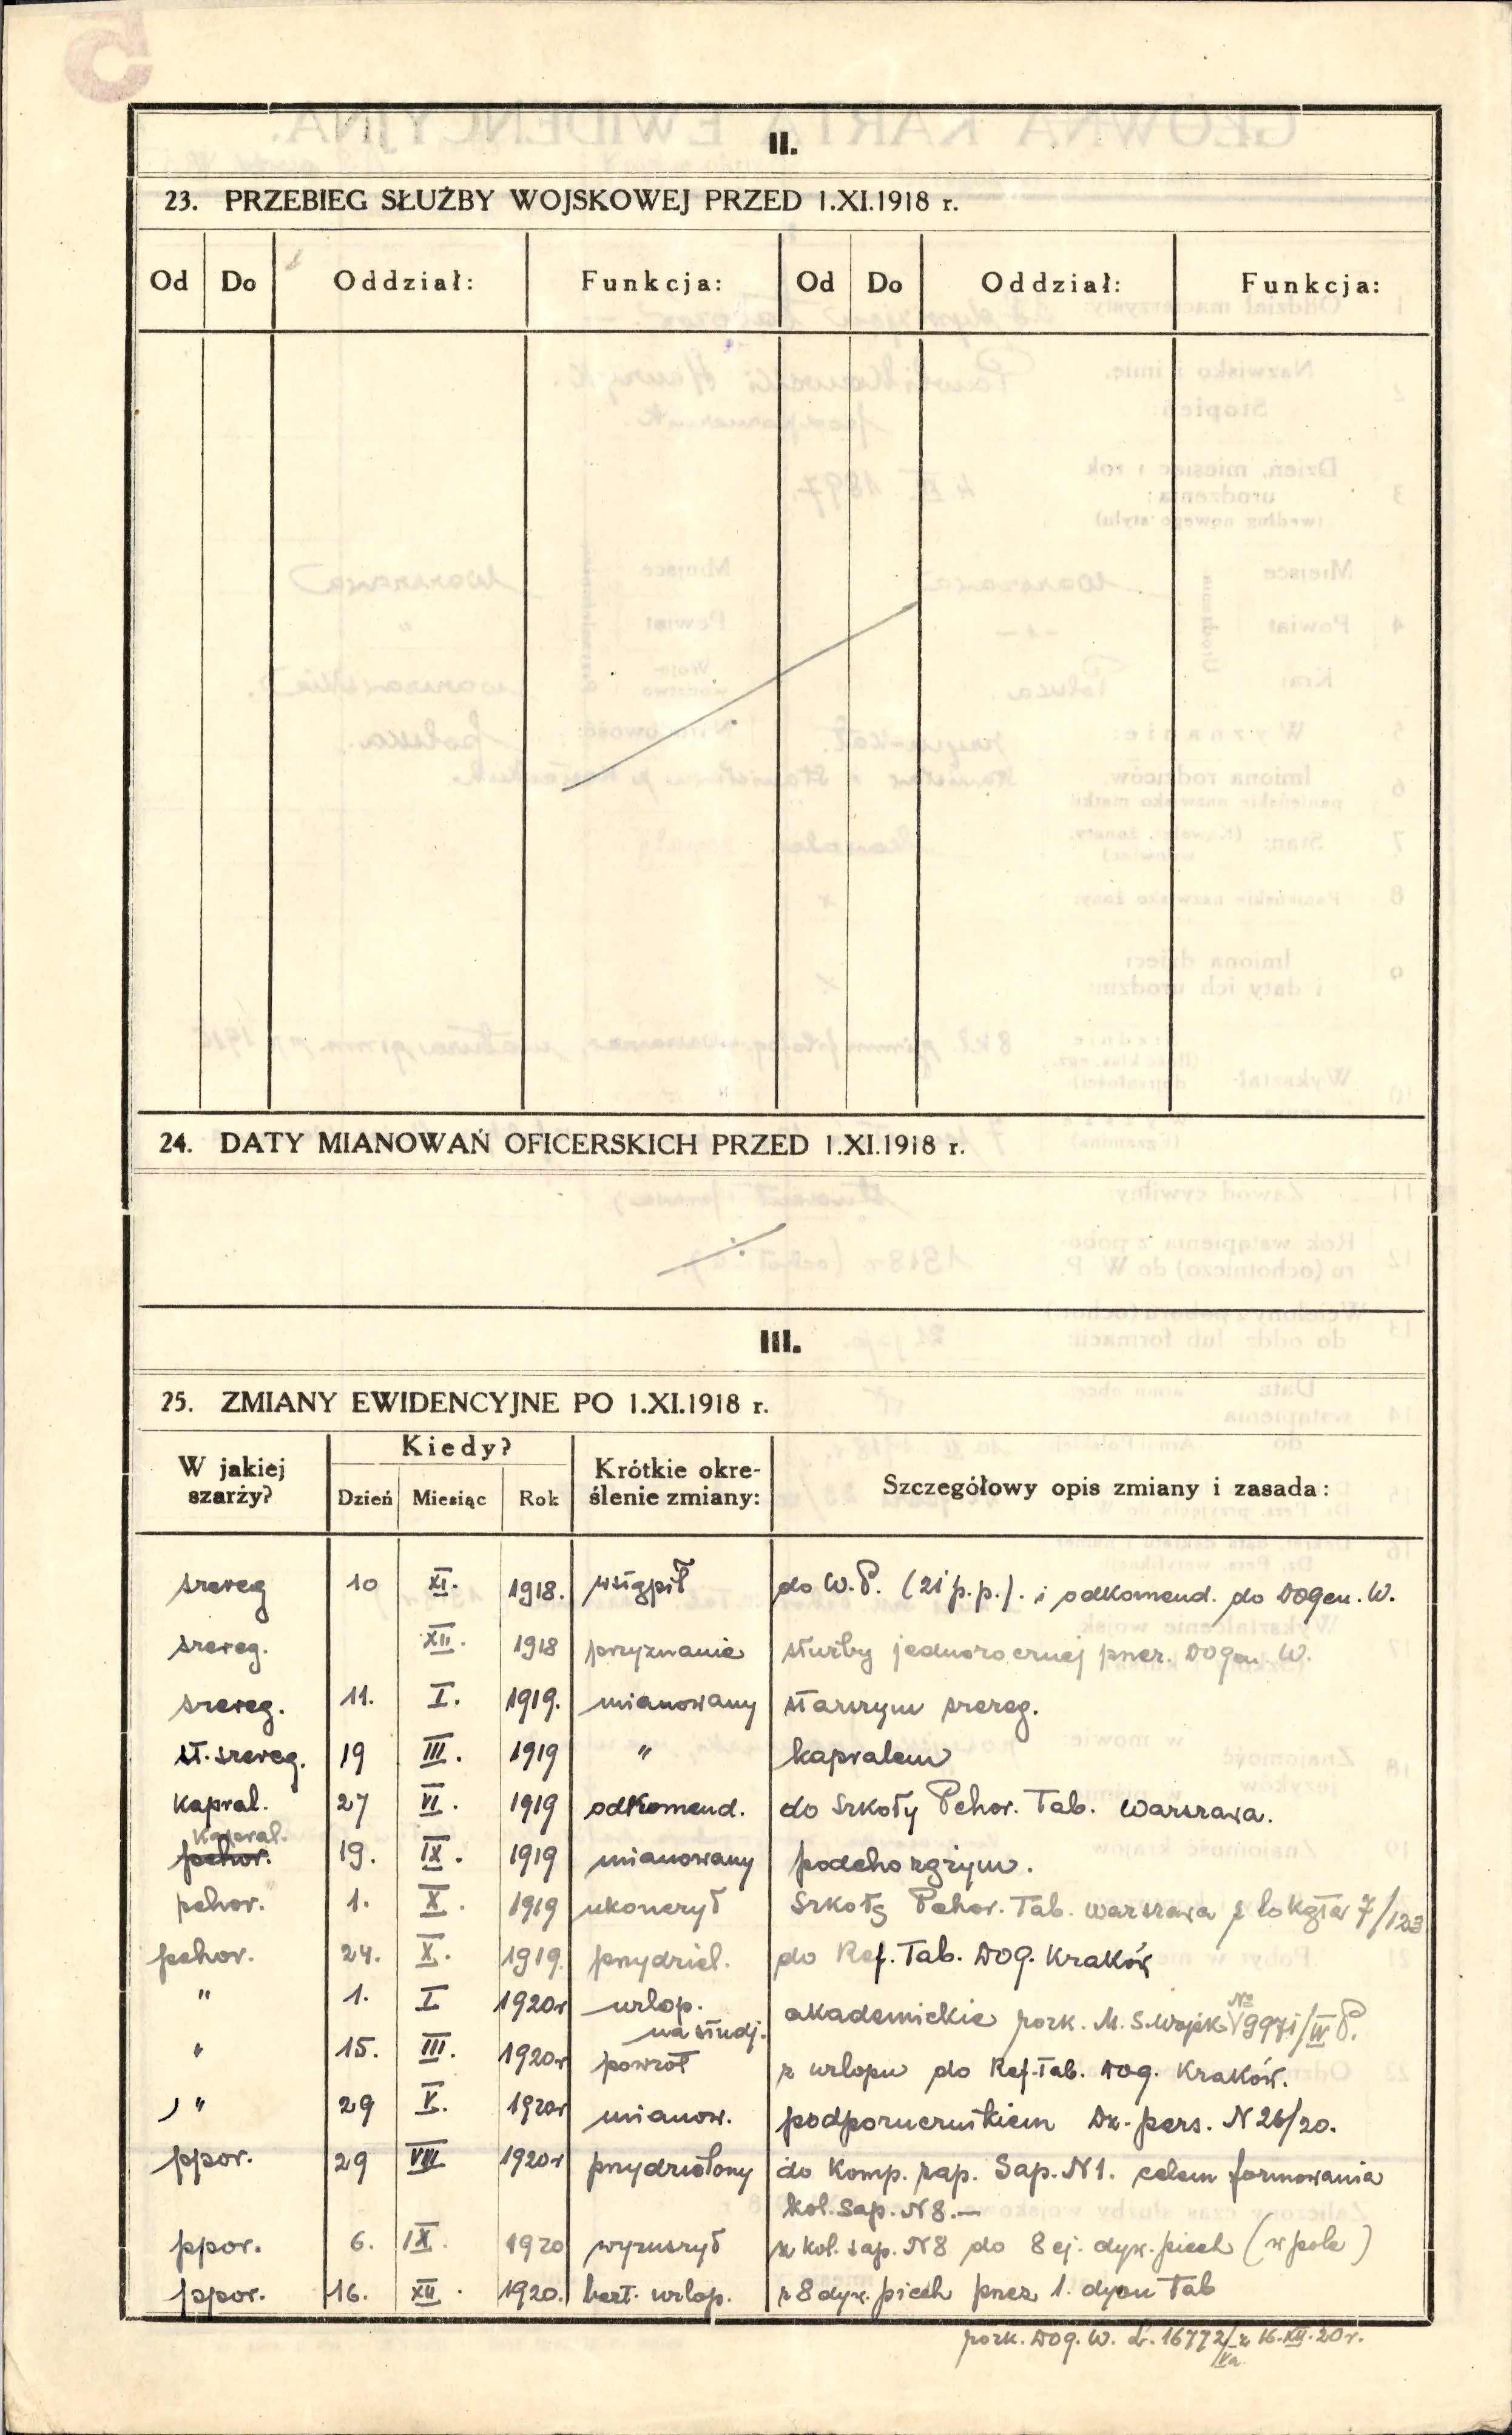 II.
23. PRZEBIEG SŁUŻBY WOJSKOWEJ PRZED 1.XI.1918 r.
Od Do Oddział: Funkcja: Od Do Oddział: Funkcja:
24. DATY MIANOWAŃ OFICERSKICH PRZED 1.XI.1918 r.
III.
25. ZMIANY EWIDENCYJNE PO 1.XI.1918 r.
W jakiej szarży? Kiedy? Dzień Miesiąc Rok Krótkie okre-ślenie zmiany: Szczegółowy opis zmiany i zasada:
szereg 10 XI. 1918. wstąpił do W.P. (21 p.p.). i odkomend. do DOGen. W.
szereg. XII. 1918 przyznanie służby jednorocznej przez. DOGen. W.
szereg. 11. I. 1919. mianowany starszym szereg.
st. szereg. 19 III. 1919 " kapralem
kapral. 27 VI. 1919 odkomend. do Szkoły Pchor. Tab. Warszawa.
kapral.
pchor. 19. IX. 1919 mianowany podchorążym.
pchor. 1. X. 1919 ukończył Szkołę Pchor. Tab. Warszawa z lokatą 7/123
pchor. 24. X. 1919. przydziel. do Ref. Tab. DOG. Kraków
" 1. I 1920r urlop. na studj. akademickie rozk. M. S. Wojsk № 9971/IV P.
" 15. III. 1920r powrót z urlopu do Ref. Tab. DOG. Kraków.
" 29 V. 1920r mianow. podporucznikiem Dz. pers. N 26/20.
ppor. 29 VIII 1920r przydzielony do Komp. zap. Sap. N 1. celem formowania
kol. Sap. N 8. —
ppor. 6. IX. 1920 wyruszył z kol. sap. N 8 do 8 ej. dyw. piech (w pole)
ppor. 16. XII. 1920. bezt. urlop. z 8 dyw. piech przez 1. dyon Tab
rozk. DOG. W. L. 16772/Va z 16.XII.20 r.